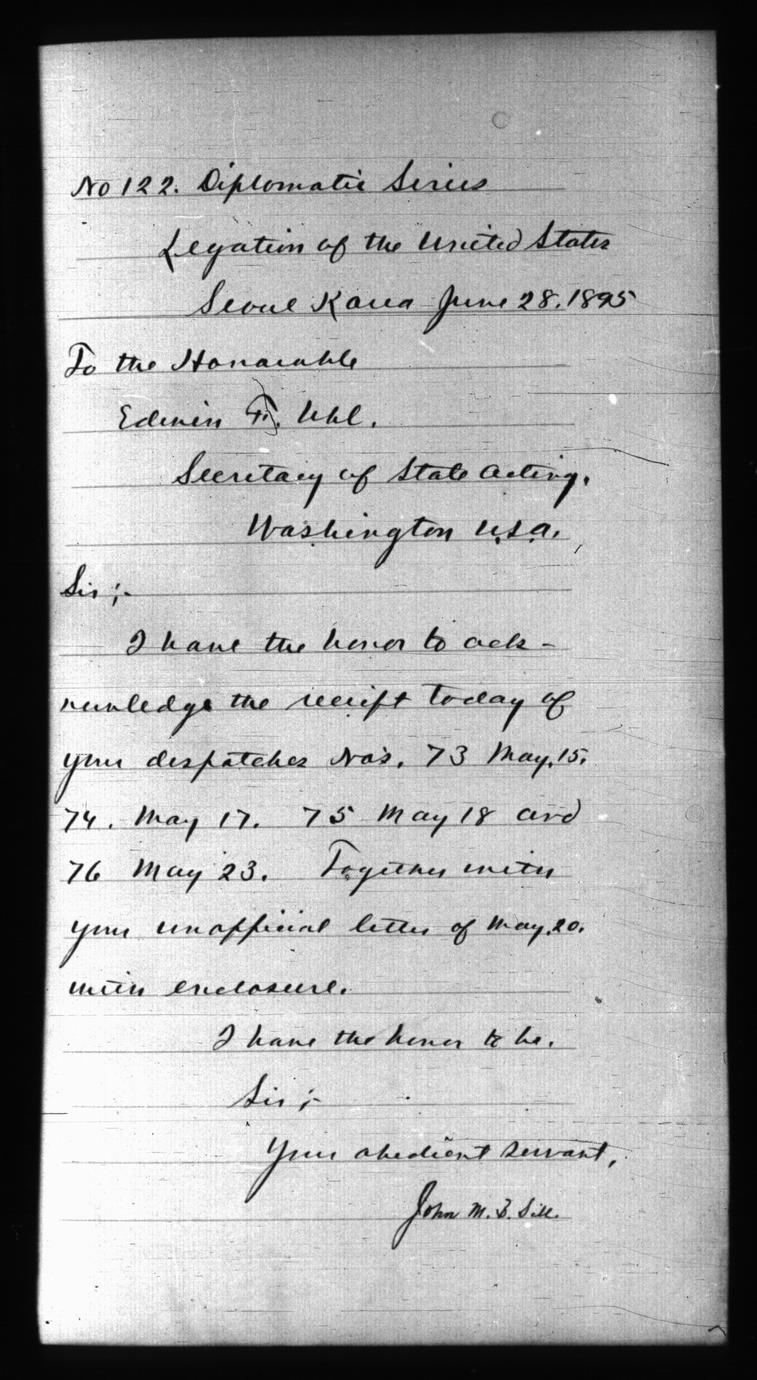 No 122. Diplomatic Series
Legation of the United States
Seoul Korea June 28. 1895
To the Honorable
Edwin F. Uhl.
Secretary of State Acting.
Washington U.S.A.
Sir;-
I have the honor to ack-
nowledge the receipt today of
your despatches Nos. 73 May. 15.
74. May 17. 75 May 18 and
76 May 23. Together with
your unofficial letter of May. 20.
with enclosure.
I have the honor to be.
Sir;-
Your obedient servant,
John M. B. Sill.